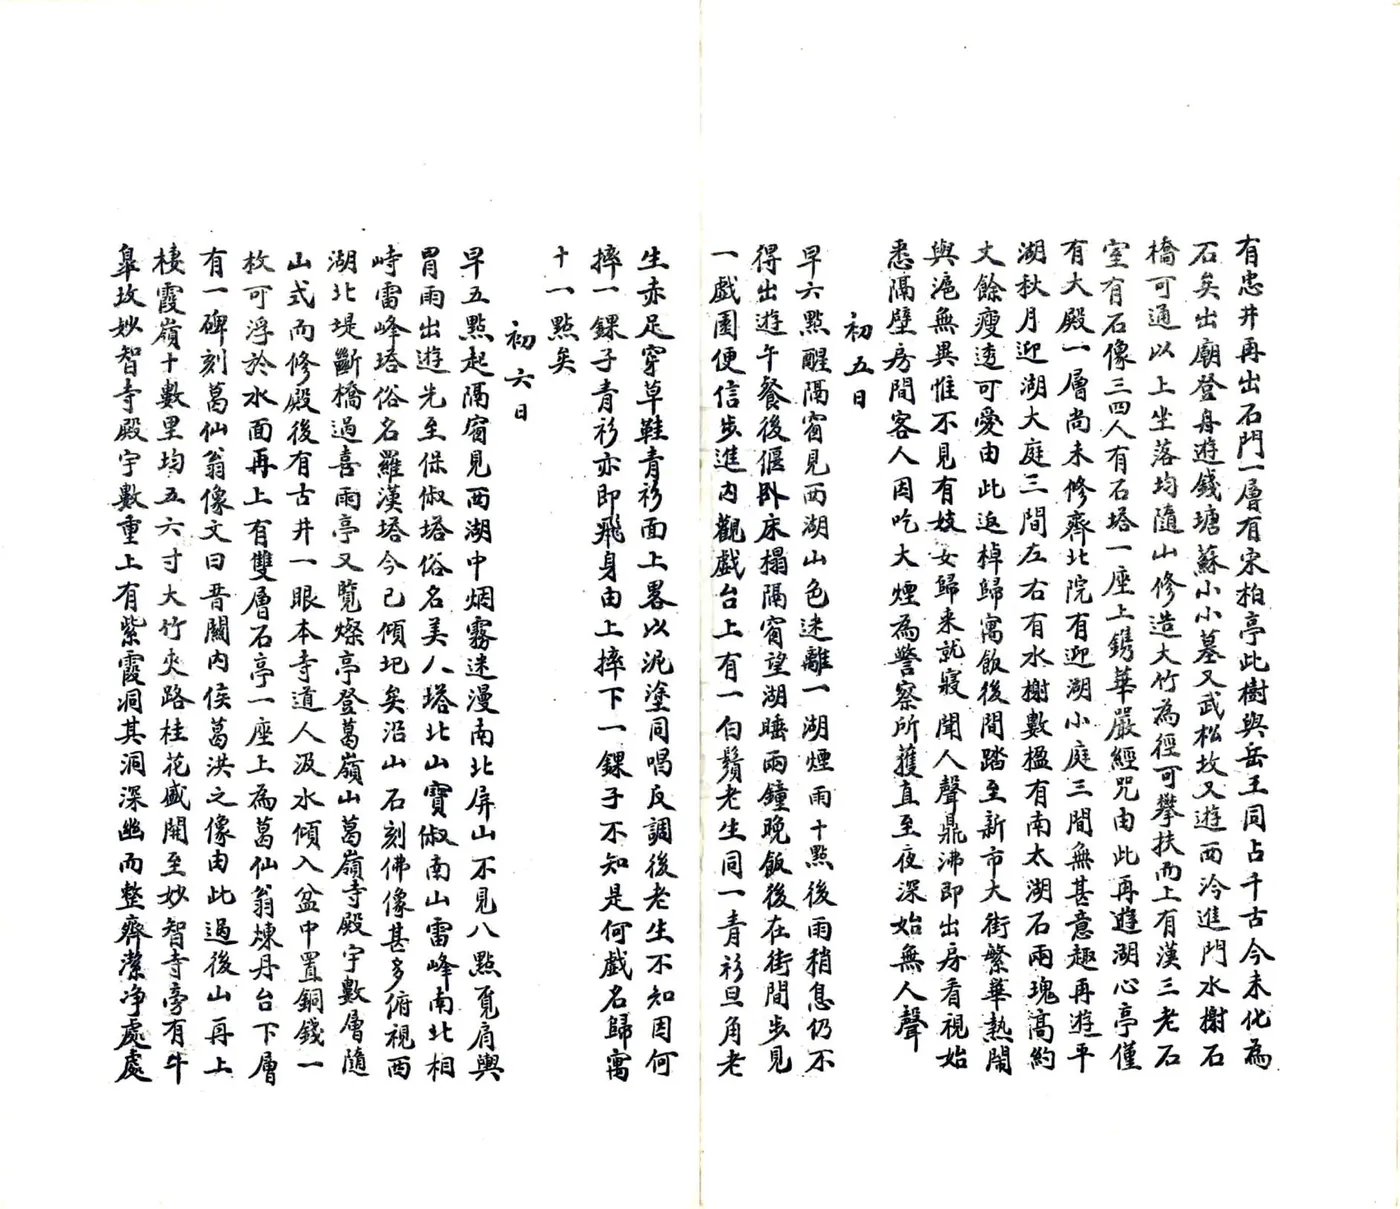 有忠井再出石門一層有宋柏亭此樹與岳王同占千古今未化為
石矣出廟登舟遊錢塘蘇小小墓又武松坟又遊西泠進門水榭石
橋可通以上坐落均隨山修造大竹為徑可攀扶而上有漢三老石
室有石像三四人有石塔一座上鐫華嚴經咒由此再遊湖心亭僅
有大殿一層尚未修齊北院有迎湖小庭三間無甚意趣再遊平
湖秋月迎湖大庭三間左右有水榭數楹有南太湖石兩瑰高約
丈餘瘦透可愛由此返棹歸寓飯後間踏至新市大街繁華熱鬧
與滬無異惟不見有妓女歸来就寢聞人聲鼎沸即出房看視始
悉隔壁房間客人因吃大煙為警察所獲直至夜深始無人聲
初五日
早六點醒隔窗見西湖山色迷離一湖煙雨十點後雨稍息仍不
得出遊午餐後偃卧床榻隔窗望湖睡兩鐘晚飯後在街間步見
一戲園便信步進内觀戲台上有一白鬚老生同一青衫旦角老
生赤足穿草鞋青衫面上畧以泥塗同唱反調後老生不知因何
摔一錁子青衫亦即飛身由上摔下一錁子不知是何戲名歸寓
十一點矣
初六日
早五點起隔窗見西湖中烟霧迷漫南北屏山不見八點覓肩輿
冒雨出遊先至保俶塔俗名美人塔北山寶俶南山雷峰南北相
峙雷峰塔俗名羅漢塔今已傾圯矣沿山石刻佛像甚多俯視西
湖北堤斷橋過喜雨亭又覽燦亭登葛嶺山葛嶺寺殿宇數層隨
山式而修殿後有古井一眼本寺道人汲水傾入盆中置銅錢一
枚可浮於水面再上有雙層石亭一座上為葛仙翁煉丹台下層
有一碑刻葛仙翁像文曰晋關内侯葛洪之像由此過後山再上
棲霞嶺十數里均五六寸大竹夾路桂花盛開至妙智寺旁有牛
皐坟妙智寺殿宇數重上有紫霞洞其洞深幽而整齊潔净處處